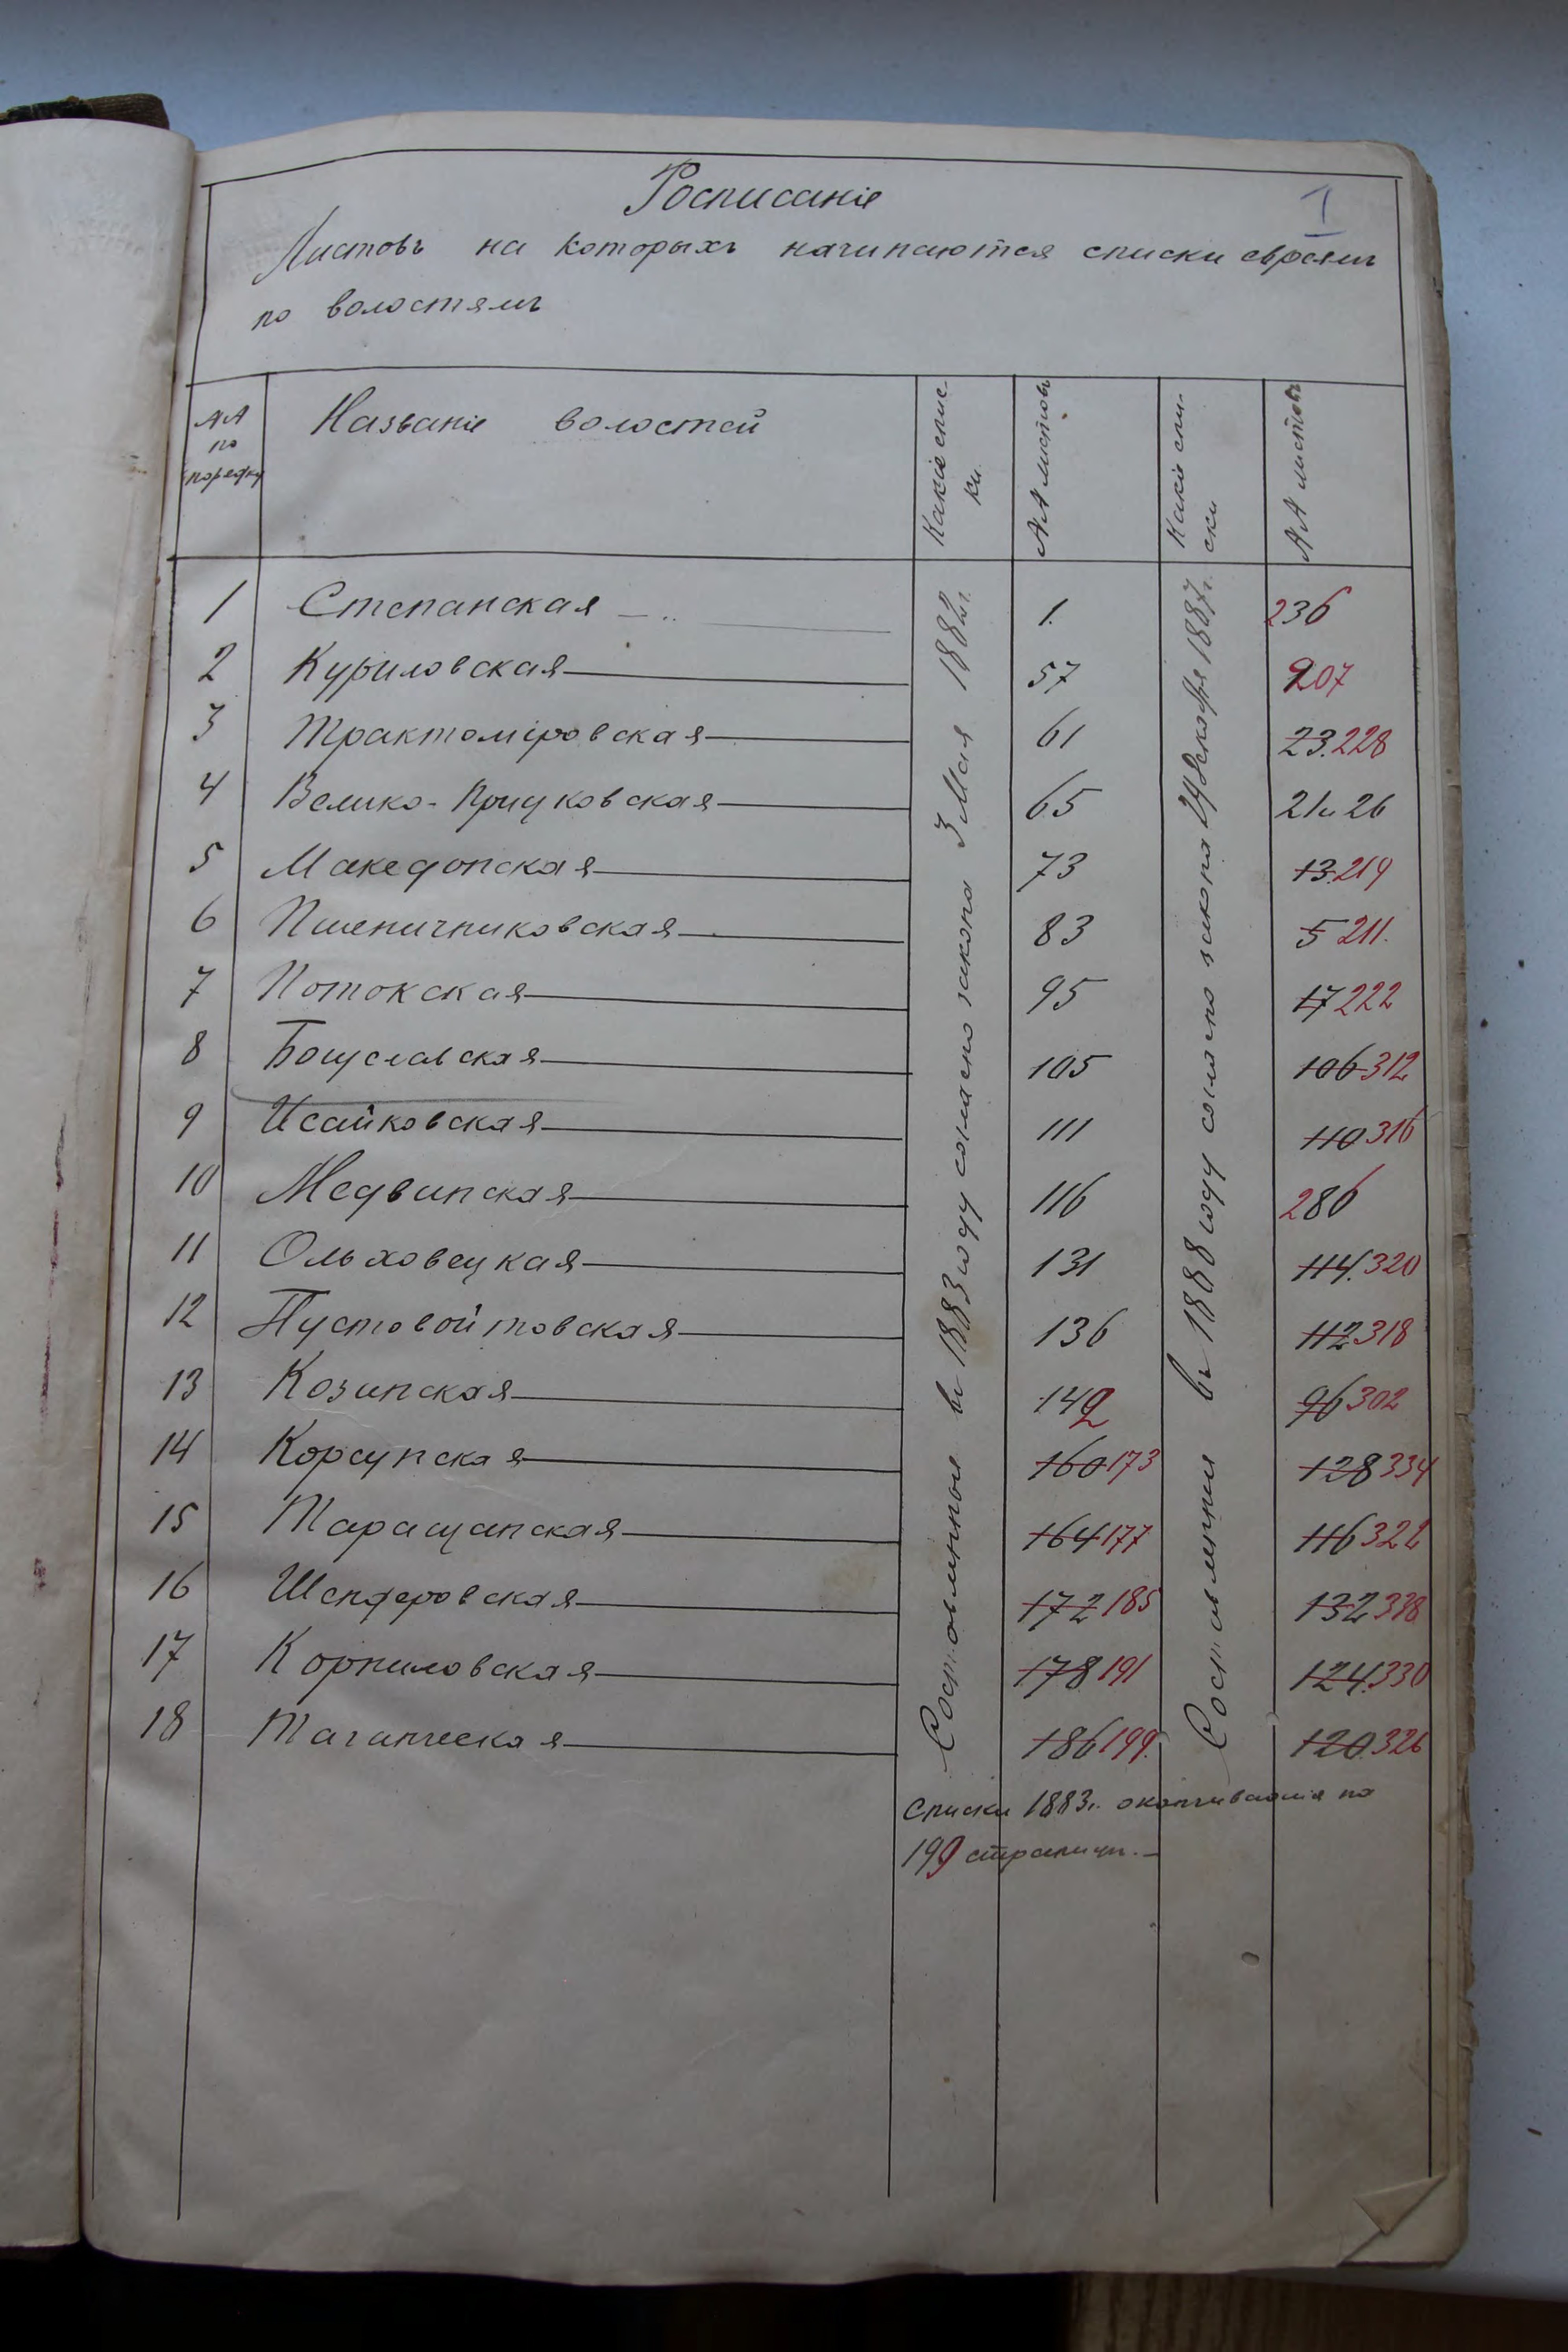 Росписаніе
1
Листовъ на которыхъ начинаются списки евреямъ
по волостямъ
№№ по порядку Названіе волостей Какіе списки №№ листовъ Какіе списки №№ листовъ
Составленные въ 1883 году согласно закона 3 Мая 1882 г.
Составленные въ 1888 году согласно закона 24 Декабря 1887 г.
1 Степанская 1. 236
2 Куриловская 57 207
3 Трактоміровская 61 23. 228
4 Велико-Прицковская 65 21 и 26
5 Македонская 73 13. 219
6 Пшеничниковская 83 5 211.
7 Потокская 95 17 222
8 Богуславская 105 106 312
9 Исайковская 111 110 316
10 Медвинская 116 286
11 Ольховецкая 131 114. 320
12 Пустовойтовская 136 112 318
13 Козинская 149 96 302
14 Корсунская 160 173 128 334
15 Таращанская 164 177 116 322
16 Шендеровская 172 185 132 338
17 Корниловская 178 191 124. 330
18 Таганческая 186 199. 120. 326
Списки 1883 г. оканчиваются на
199 страницѣ.